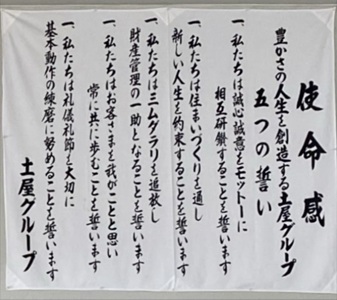 使命感
豊かさの人生を創造する土屋グループ
五つの誓い
一、私たちは誠心誠意をモットーに
相互研鑽することを誓います
一、私たちは住まいづくりを通し
新しい人生を約束することを誓います
一、私たちはミムグラリを追放し
財産管理の一助となることを誓います
一、私たちはお客さまを我がことと思い
常に共に歩むことを誓います
一、私たちは礼儀礼節を大切に
基本動作の練磨に努めることを誓います
土屋グループ